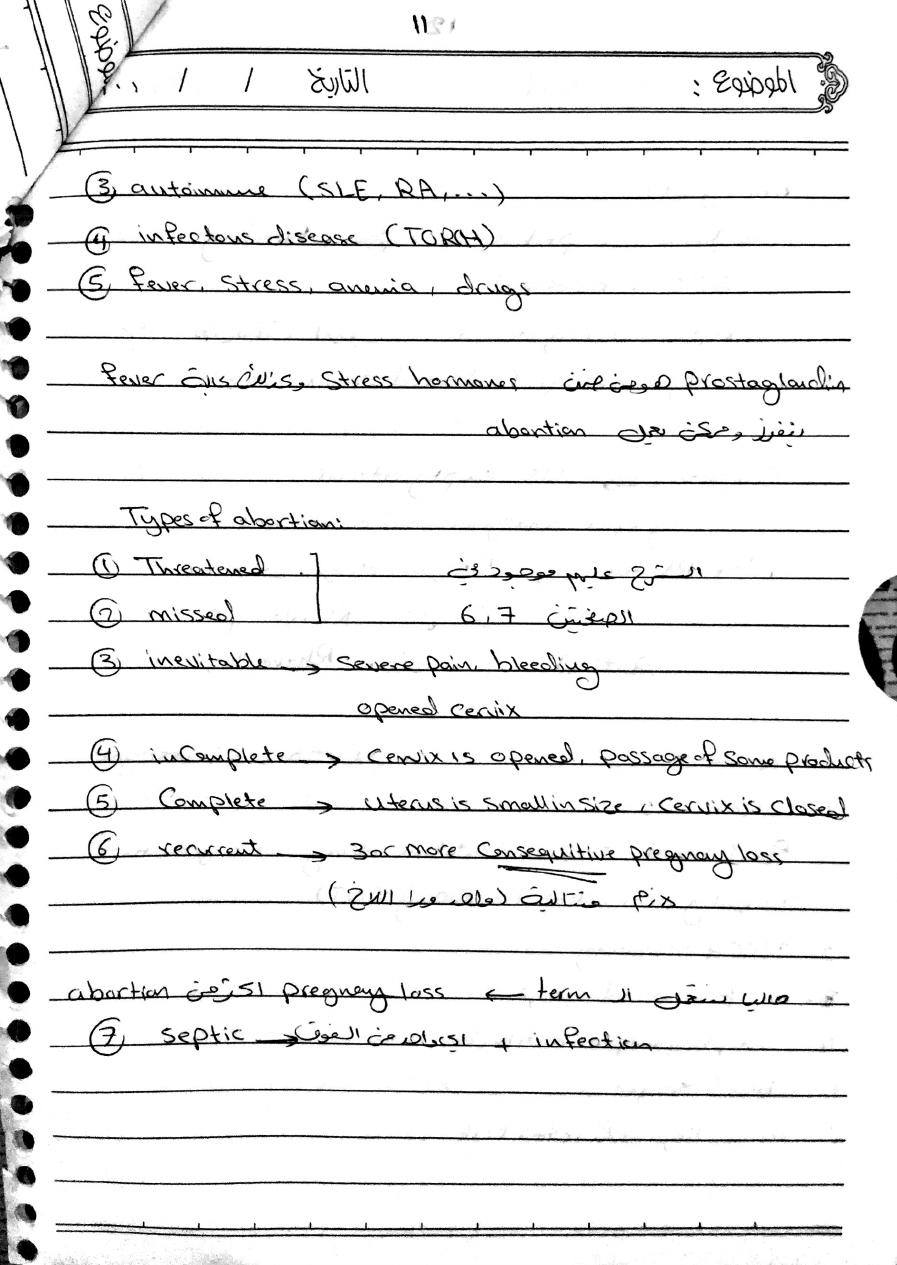 11
الموضوع :
التاريخ / /
③ autoimmune (SLE, RA, ...)
④ infectous disease (TORCH)
⑤ fever, stress, anemia, drugs
prostaglandin stress hormones fever
بتفرز وممكن تعمل abortion
Types of abortion:
① Threatened
② missed
الشرح عليهم موجود في
الصفحتين 6,7
③ inevitable → severe pain, bleeding
opened cervix
④ incomplete → cervix is opened, passage of some products
⑤ complete → uterus is small in size, cervix is closed
⑥ recurrent → 3 or more consequitive pregnancy loss
لازم متتالية (واحد ورا الثاني)
حاليا نستعمل الـ term ← pregnancy loss اكثر من abortion
⑦ septic → اي واحد من الفوق + infection